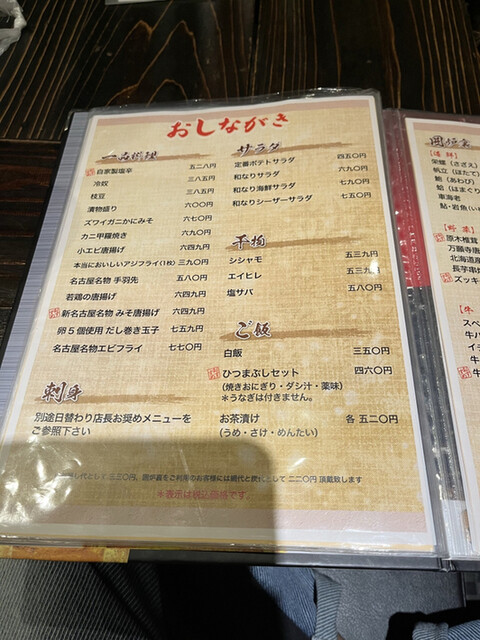 おしながき
一品料理
自家製塩辛 五二八円
冷奴 三八五円
枝豆 三八五円
漬物盛り 六〇〇円
ズワイガニかにみそ 六七〇円
カニ甲羅焼き 六九〇円
小エビ唐揚げ 六四九円
本当においしいアジフライ(1枚) 三九〇円
名古屋名物 手羽先 五八〇円
若鶏の唐揚げ 六四九円
新名古屋名物 みそ唐揚げ 六四九円
卵5個使用 だし巻き玉子 七五九円
名古屋名物エビフライ 七七〇円
刺身
別途日替わり店長お奨めメニューを
ご参照下さい
サラダ
定番ポテトサラダ 四五〇円
和なりサラダ 六九〇円
和なり海鮮サラダ 七九〇円
和なりシーザーサラダ 七五〇円
干物
シシャモ 五三九円
エイヒレ 五三九円
塩サバ 五八〇円
ご飯
白飯 三五〇円
ひつまぶしセット 四六〇円
(焼きおにぎり・ダシ汁・薬味)
*うなぎは付きません。
お茶漬け 各 五二〇円
(うめ・さけ・めんたい)
し代として 三三〇円、囲炉裏をご利用のお客様には網代と炭代として 二二〇円 頂戴致します
※表示は税込価格です。
[海鮮]
栄螺(さざえ)
帆立(ほたて)
鮑(あわび)
蛤(はまぐり
車海老
鮎・岩魚(いわ
[野菜]
原木椎茸
万願寺唐
北海道産
長芋串焼
ズッキ
[牛
スペ
牛ハ
イチ
牛
牛